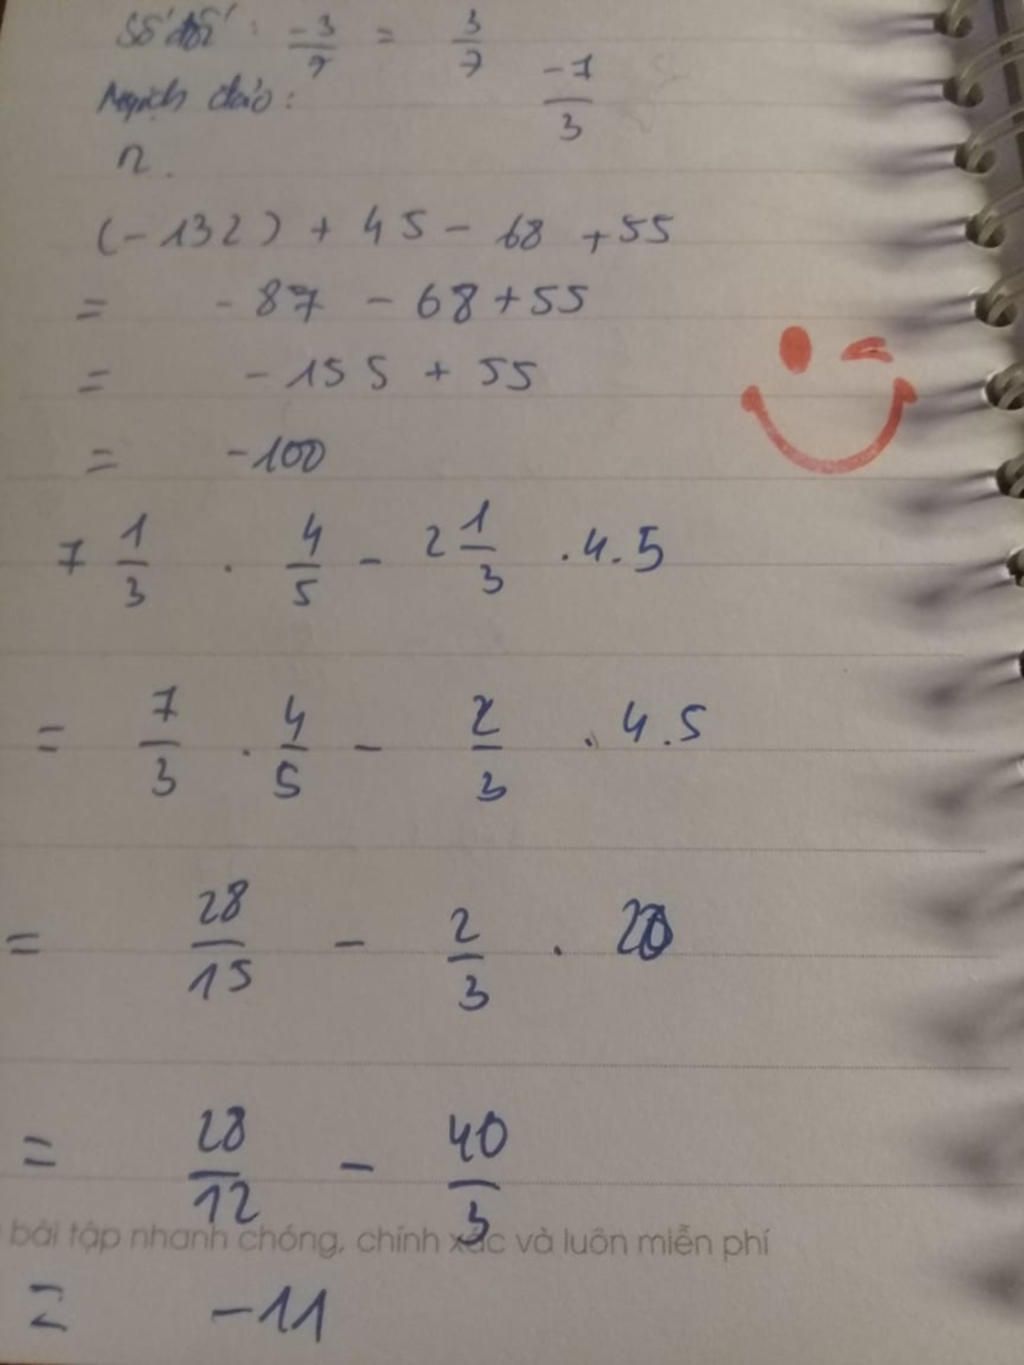 Số đối : -3/7 = 3/7
Nghịch đảo : -7/3
n.
(-132) + 45 - 68 + 55
= - 87 - 68 + 55
= - 155 + 55
= -100
7 1/3 . 4/5 - 2 1/3 . 4.5
= 7/3 . 4/5 - 2/3 . 4.5
= 28/15 - 2/3 . 20
= 28/12 - 40/3
bài tập nhanh chóng, chính xác và luôn miễn phí
= -11